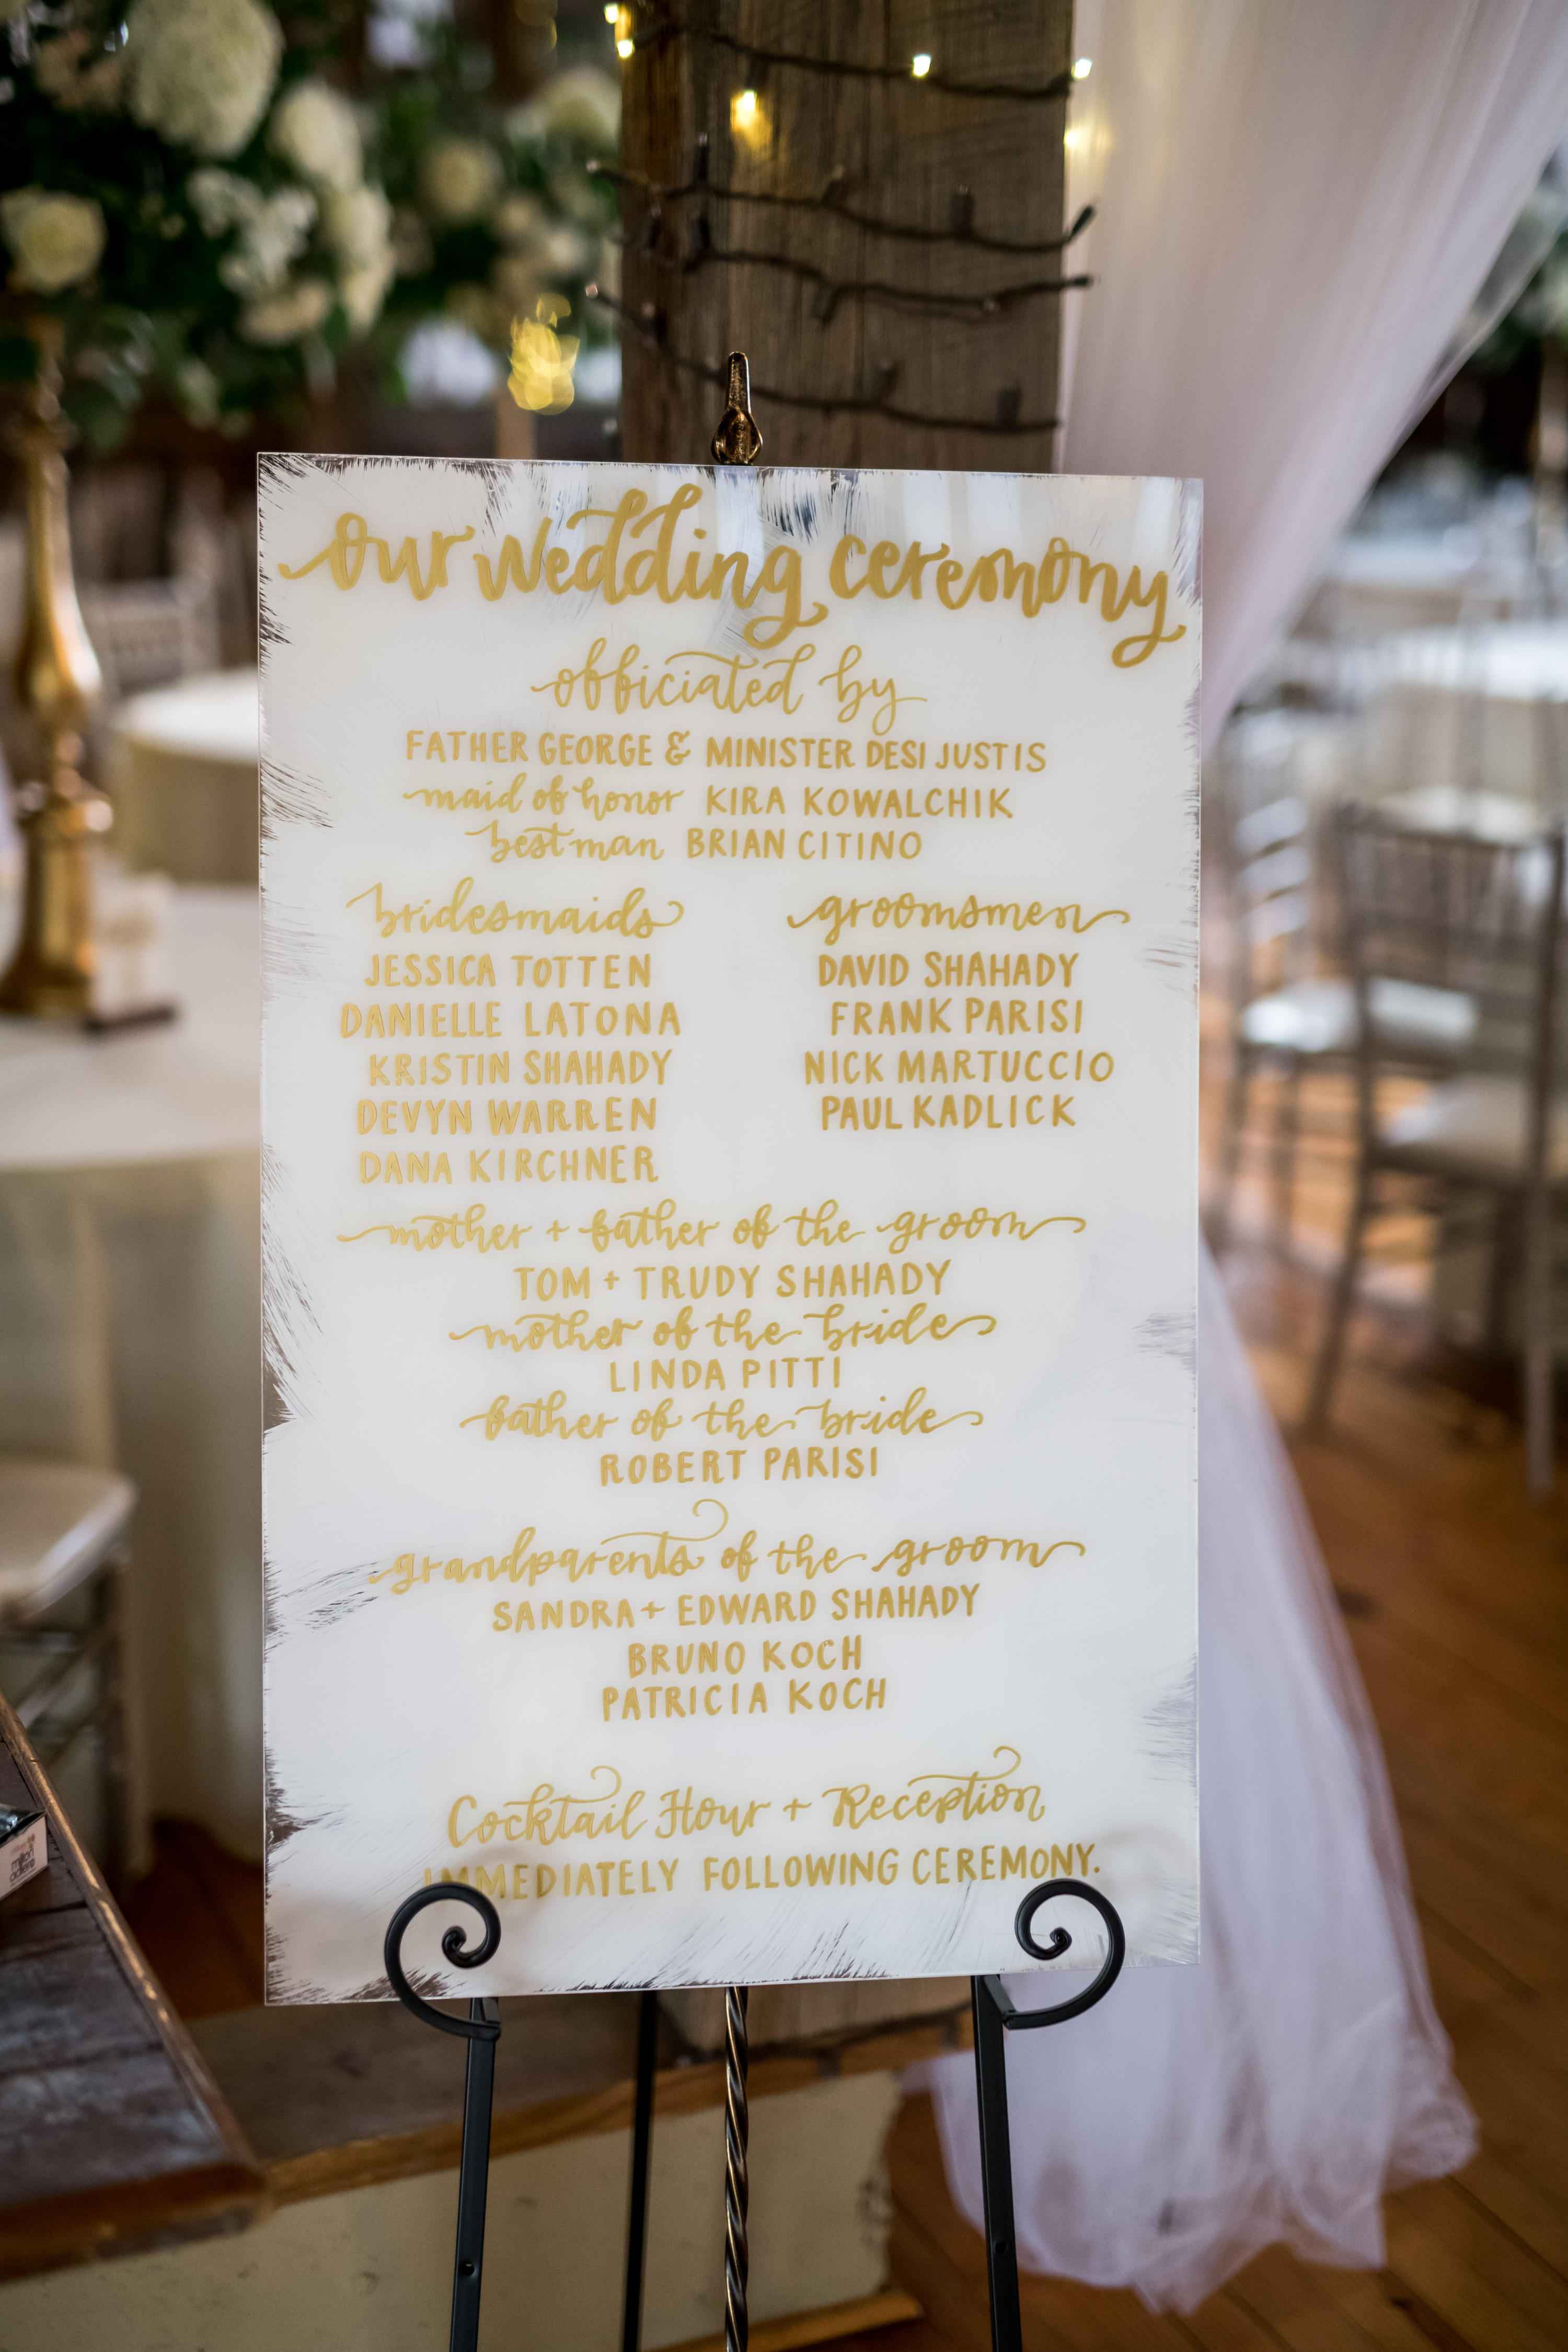 our wedding ceremony
officiated by
FATHER GEORGE & MINISTER DESI JUSTIS
maid of honor KIRA KOWALCHIK
best man BRIAN CITINO
bridesmaids
JESSICA TOTTEN
DANIELLE LATONA
KRISTIN SHAHADY
DEVYN WARREN
DANA KIRCHNER
groomsmen
DAVID SHAHADY
FRANK PARISI
NICK MARTUCCIO
PAUL KADLICK
mother + father of the groom
TOM + TRUDY SHAHADY
mother of the bride
LINDA PITTI
father of the bride
ROBERT PARISI
grandparents of the groom
SANDRA + EDWARD SHAHADY
BRUNO KOCH
PATRICIA KOCH
Cocktail Hour + Reception
IMMEDIATELY FOLLOWING CEREMONY.